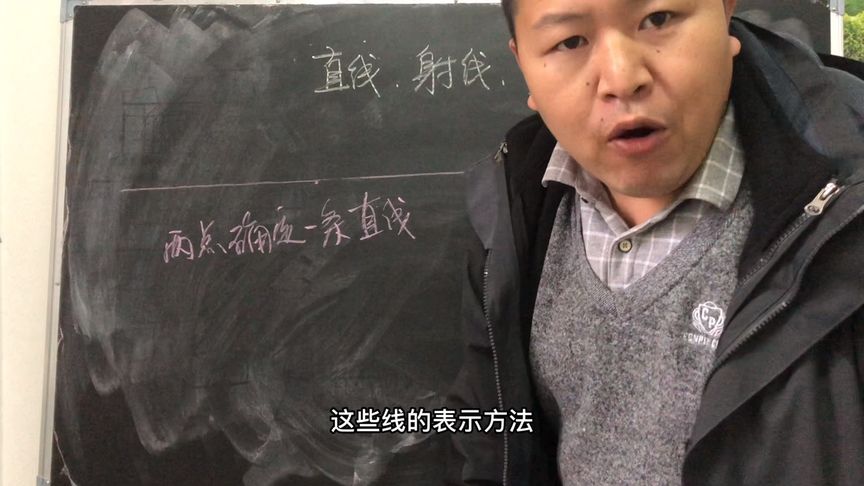 直线、射线、
两点确定一条直线
CP
这些线的表示方法